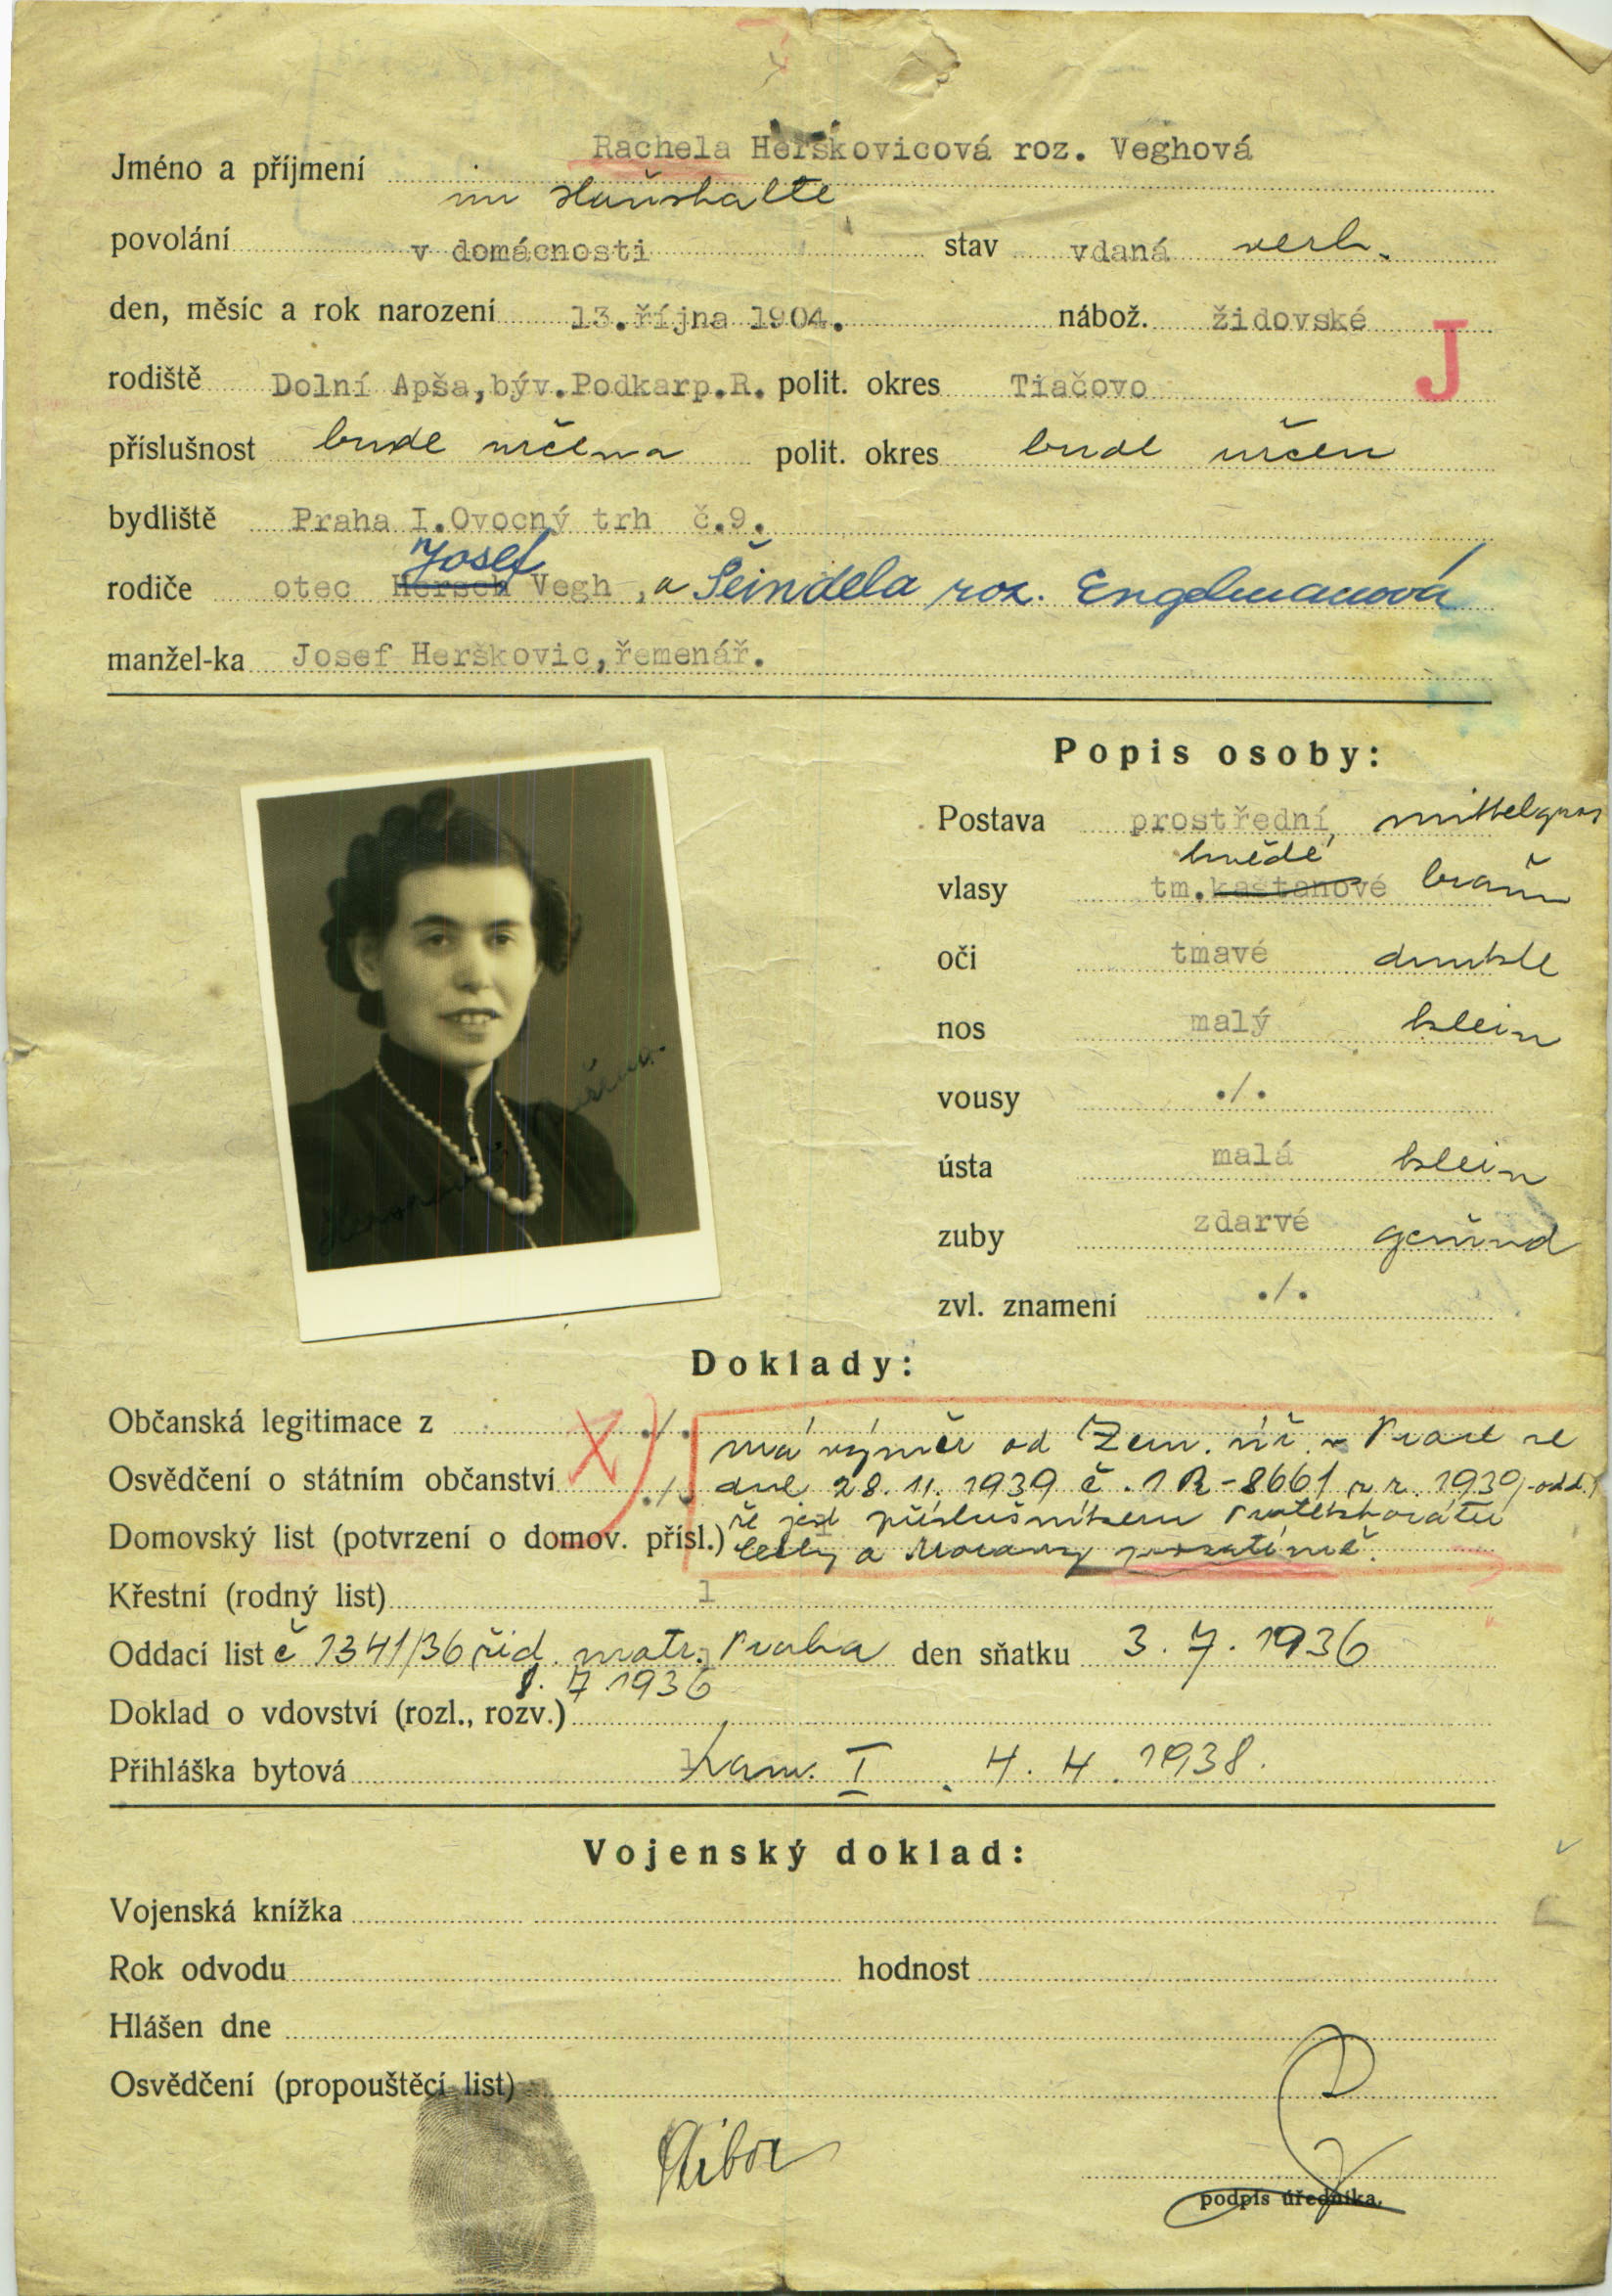 Jméno a příjmení Rachela Herškovicová roz. Veghová
im Haushalte
povolání v domácnosti stav vdaná verh.
den, měsíc a rok narození 13.října 1904. nábož. židovské
J
rodiště Dolní Apša,býv.Podkarp.R. polit. okres Tiačovo
příslušnost bude určena polit. okres bude určen
bydliště Praha I.Ovocný trh č.9.
Josef
rodiče otec Hersch Vegh , a Šeindela roz. Engelmanová
manžel-ka Josef Herškovic,řemenář.
Popis osoby:
Postava prostřední, mittelgross
hnědé
vlasy tm.kaštanové braun
oči tmavé dunkle
nos malý klein
vousy ./.
ústa malá klein
zuby zdarvé gesund
zvl. znamení ./.
Doklady:
Občanská legitimace z ./. má výměr od Zem. úř. v Praze ze
Osvědčení o státním občanství ./. dne 28. 11. 1939 č. 1 R-8661 z r. 1939
že jest příslušníkem Protektorátu
Domovský list (potvrzení o domov. přísl.) Čechy a Morava prozatímně.
Křestní (rodný list) 1
Oddací list č 1341/36 žid. matr. Praha den sňatku 3. 7. 1936
8. 7. 1936
Doklad o vdovství (rozl., rozv.)
Přihláška bytová kom. I. 4. 4. 1938.
Vojenský doklad:
Vojenská knížka
Rok odvodu hodnost
Hlášen dne
Osvědčení (propouštěcí list)
podpis úředníka.